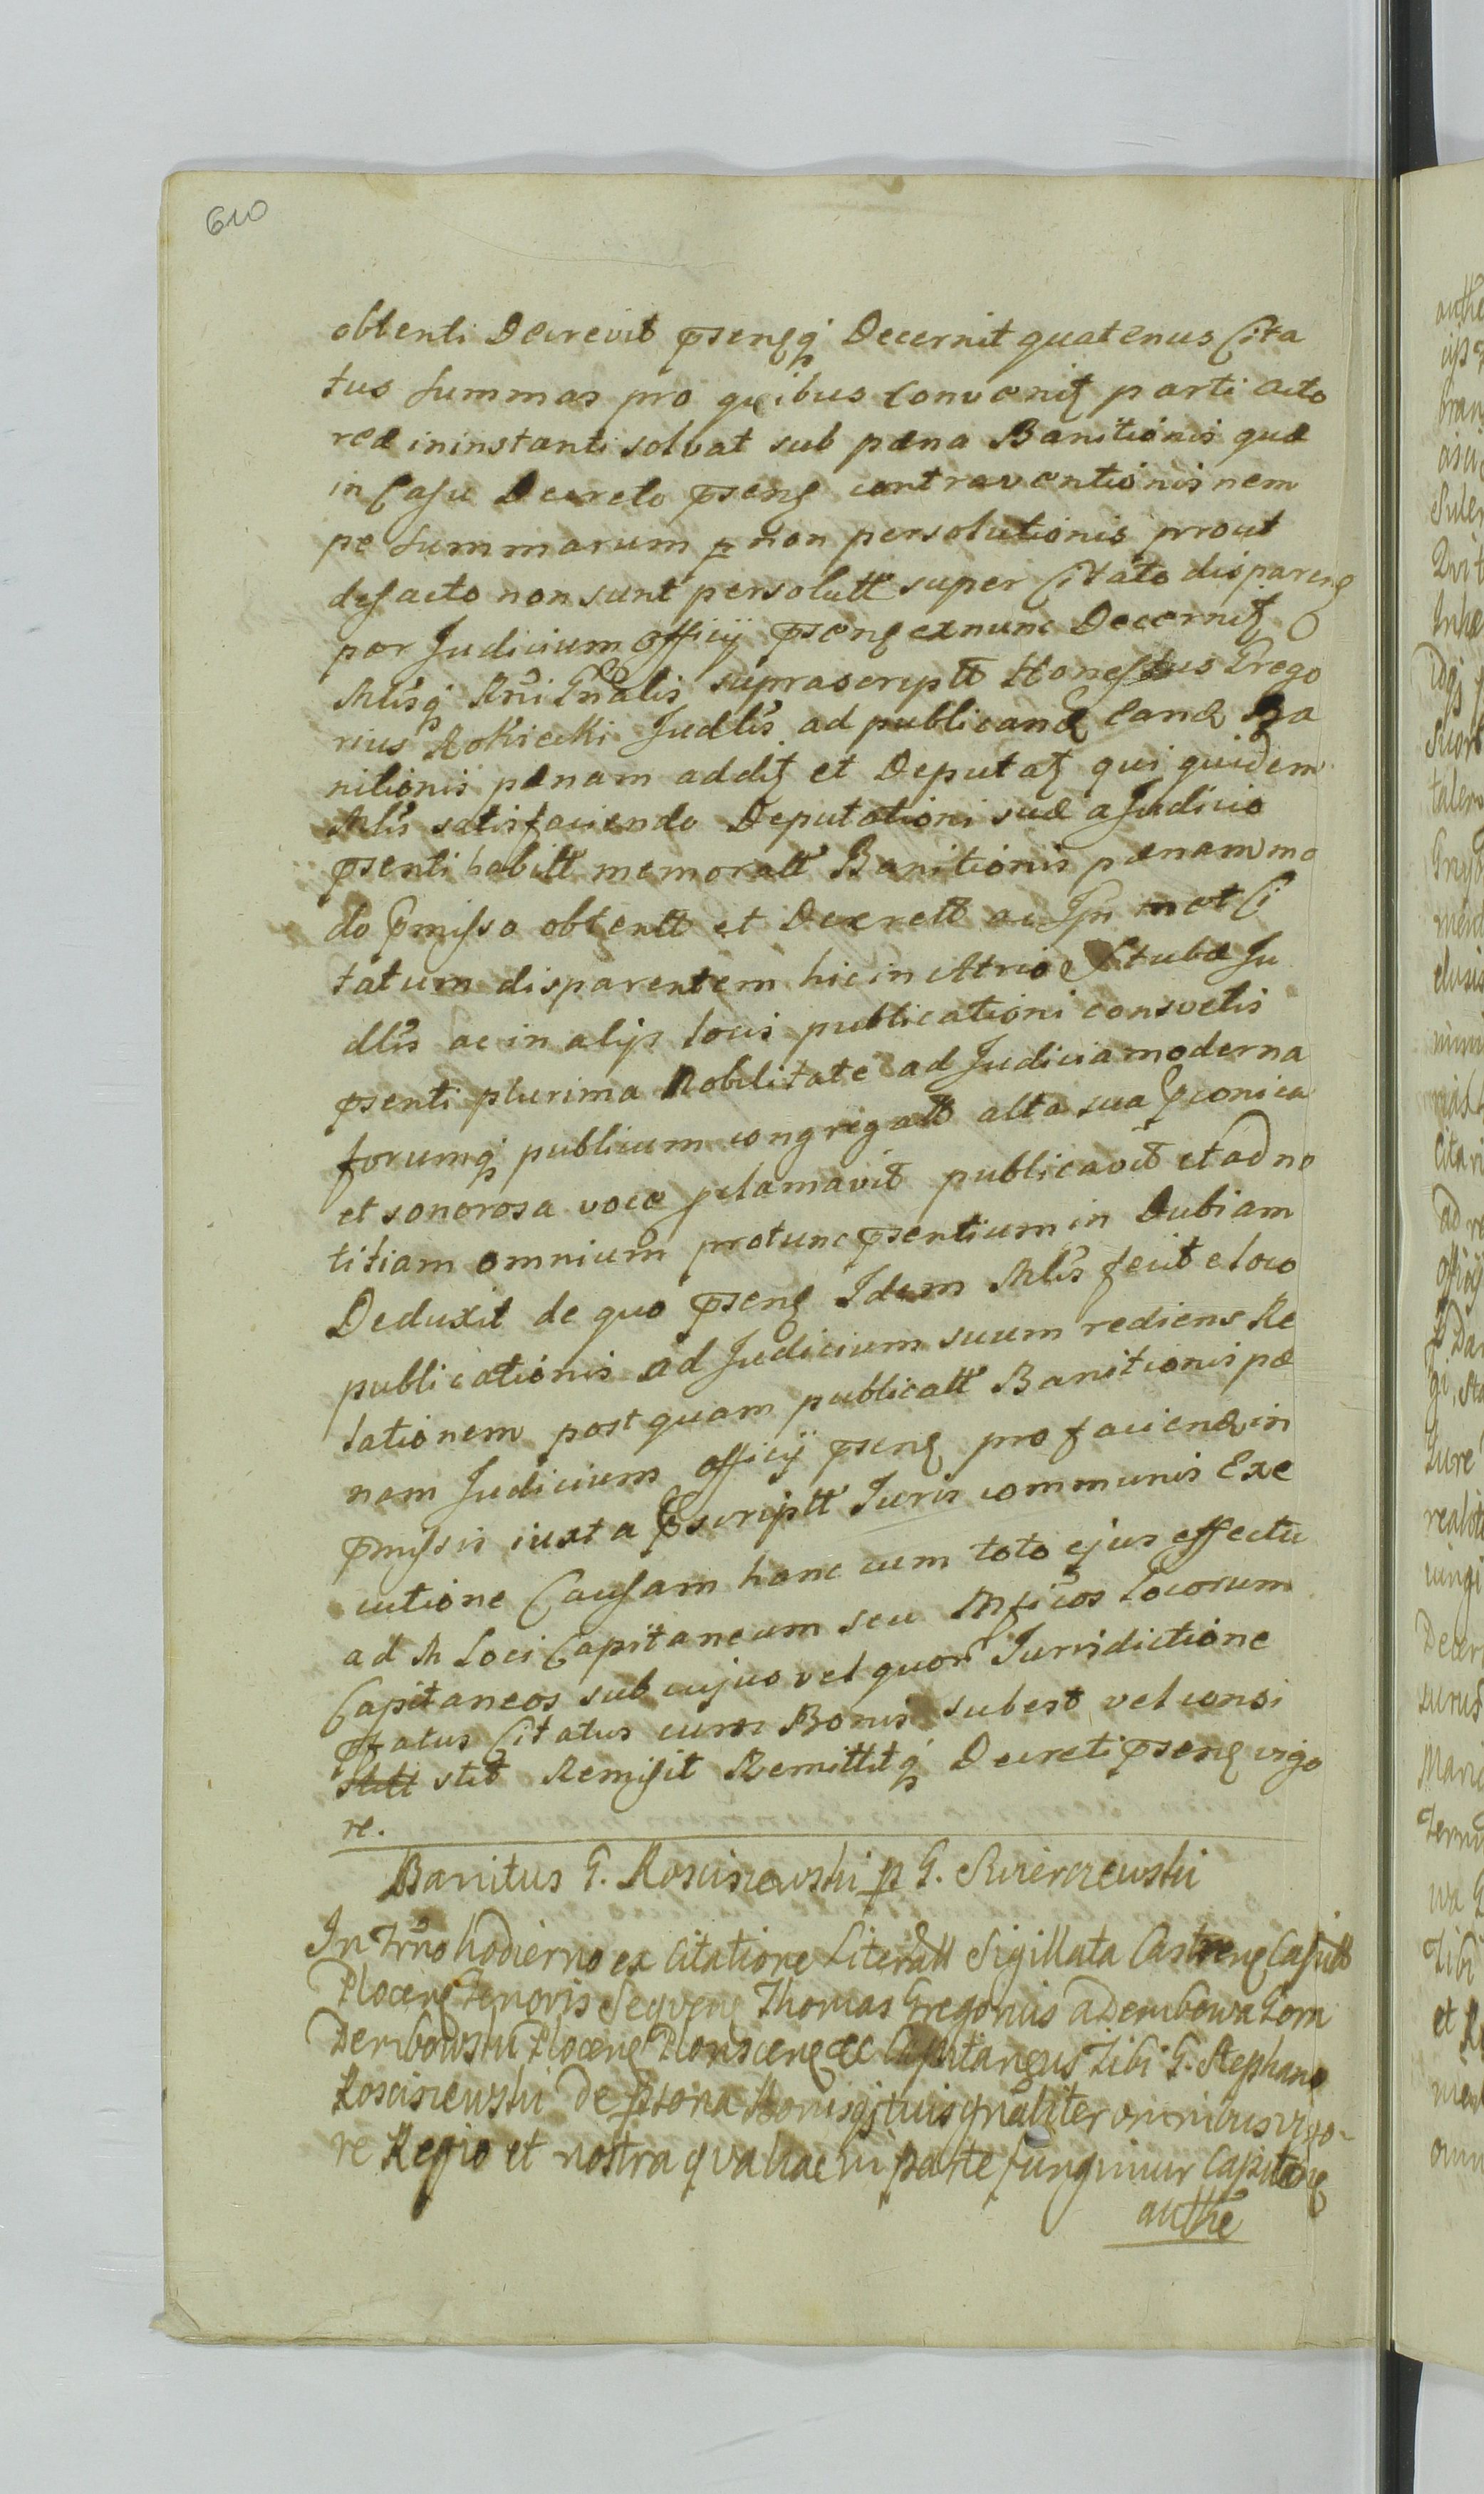 610
obtenti Decrevit pñsensq Decernit quatenus Cita
tus summas pro quibus convenit parti acto
reæ in instanti solvat sub pæna Banitionis quæ
in Casu Decreto pñsens contraventionis nem
pe summarum non persolutionis prout
de facto non sunt persolutt super Citato disparens
per Judicium officij pñsens ex nunc Decernit
Mlisq Rñi Gñalis suprascriptt Honestus Grego
rius Rokicki Judlis ad publicand eand Ba
nitionis pænam addit et Deputat qui quidem
Mlis satisfaciendo Deputationi suæ a Judicio
pñsenti habitt memoratt Banitionis pænam mo
do pmisso obtentt et Decrett ac Ipñ met Ci
tatum disparentem hic in Atrio Stubæ Ju
dlis ac in alijs locis publicationi consvetis
pñsenti plurima Nobilitate ad Judicia moderna
forumq publicum congregatt alta sua pconica
et sonorosa voce pclamavit publicavit et ad no
titiam omnium protunc pñsentium in Dubiam
Deduxit de quo pñsens Idem Mlis fecit e loco
publicationis ad Judicium suum rediens Re
lationem post quam publicatt Banitionis pæ
nam Judicium officij pñsens pro faciend in
pmissis iuxta pscriptt Juris communis Exe
cutione Causam hanc cum toto ejus effectu
ad M Loci Capitaneum seu Mficos Locorum
Capitaneos sub cujus vel quor Jurisdictione
pfatus Citatus cum Bonis subest vel consi
stit Remisit Remittitq Decreti pñsens vigo
re.
Banitus G. Kosciszewski p G. Swierczewski
In Trño hodierno ex Citatione Literatt Sigillata Castrens Capitt
Plocens tenoris sequens Thomas Gregorius a Dembowa Gora
Dembowski Plocens Plonscens &c Capitaneus Tibi G. Stephano
Kosciszewski de psona Bonisq tuis gñaliter omnibus vigo-
re Regio et nostra qua hac in parte fungimur Capitans
authe